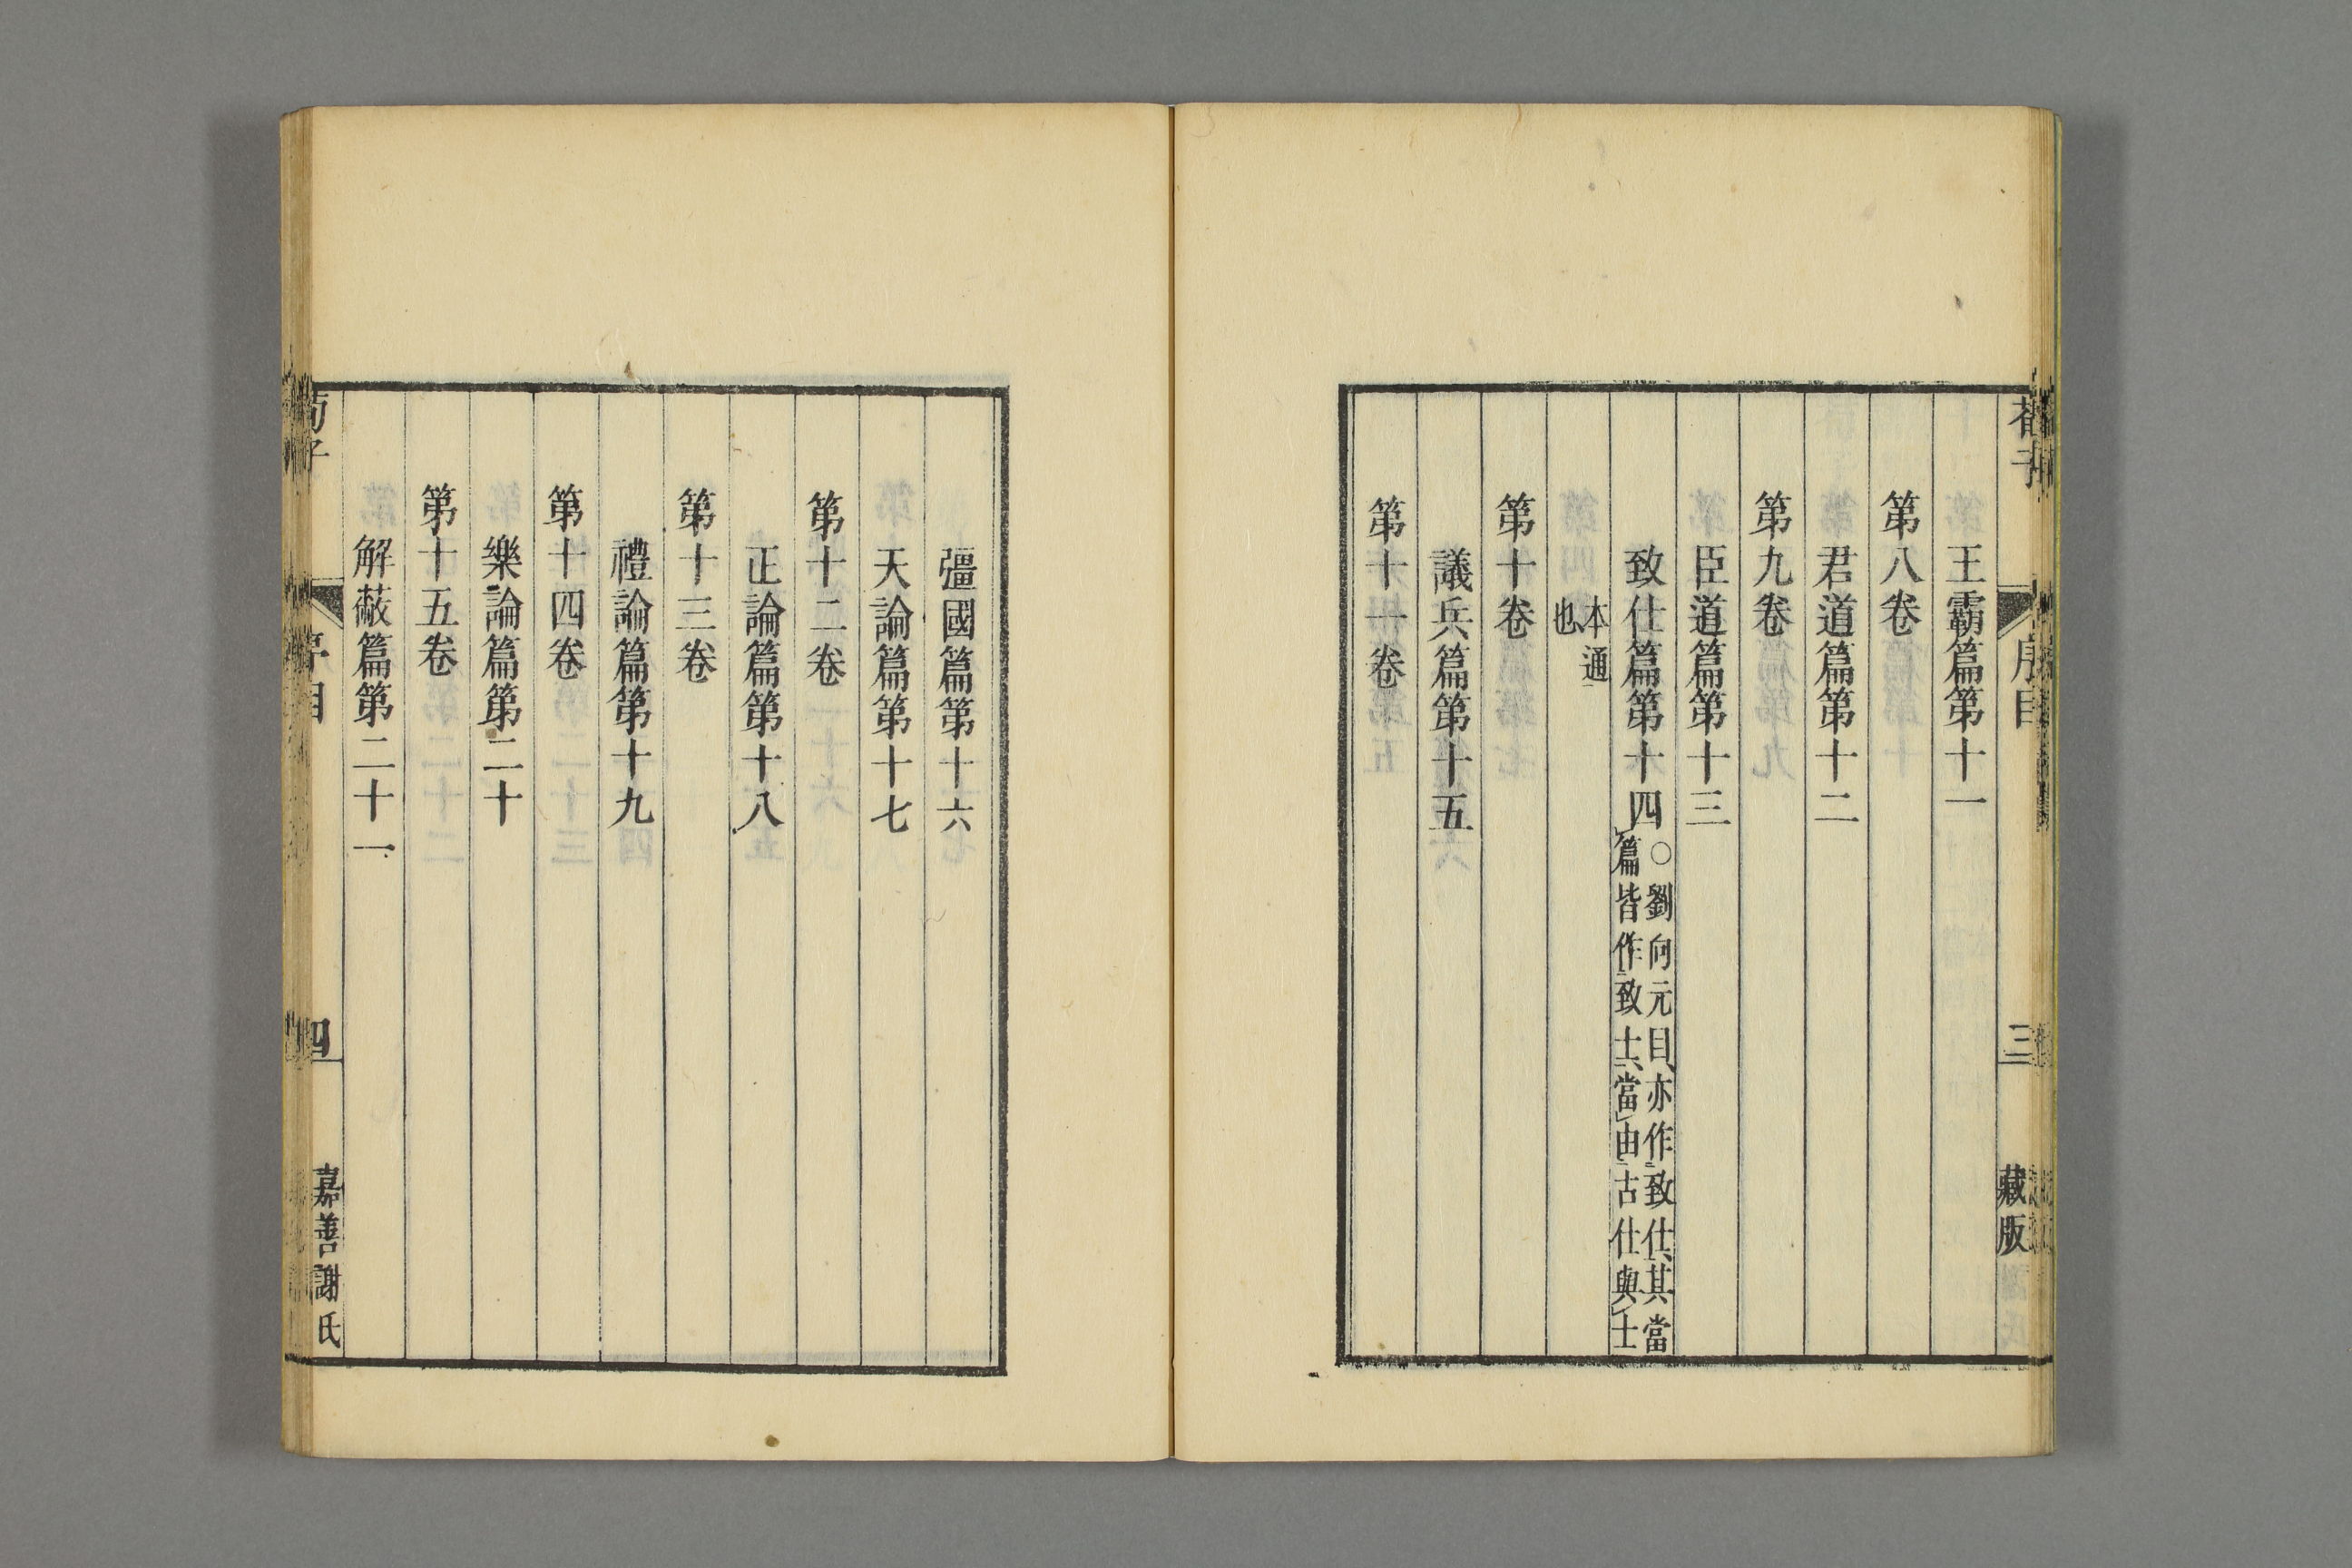 王霸篇第十一
第八卷
君道篇第十二
第九卷
臣道篇第十三
致仕篇第十四
○劉向元目亦作致仕其當
篇皆作致士當由古仕與士
本通
也
第十卷
議兵篇第十五
第十一卷
序目
三
藏版
彊國篇第十六
天論篇第十七
第十二卷
正論篇第十八
第十三卷
禮論篇第十九
第十四卷
樂論篇第二十
第十五卷
解蔽篇第二十一
荀子
序目
四
嘉善謝氏